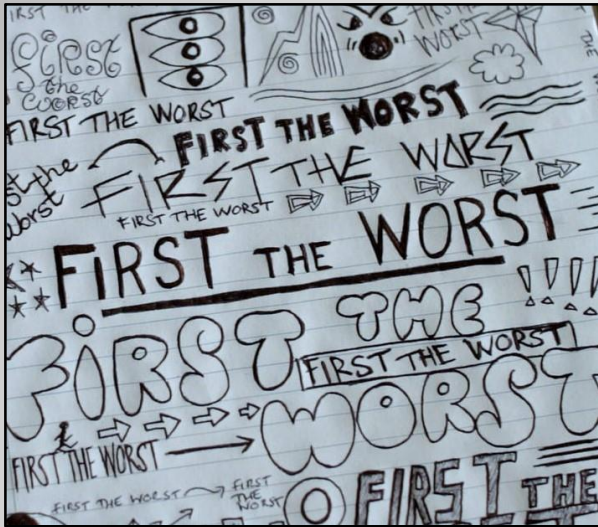 IRST THE
first
the
worst
FIRST THE
WORST
THE
FIRST THE WORST
FIRST THE WORST
st the
worst
FIRST THE WORST
FIRST THE WORST
FiRST THE WORST
!!!!
FiRST THE
WORST
FIRST THE WORST
FIRST THE WORST
FIRST THE WORST
FIRST
THE
WORST
FIRST THE